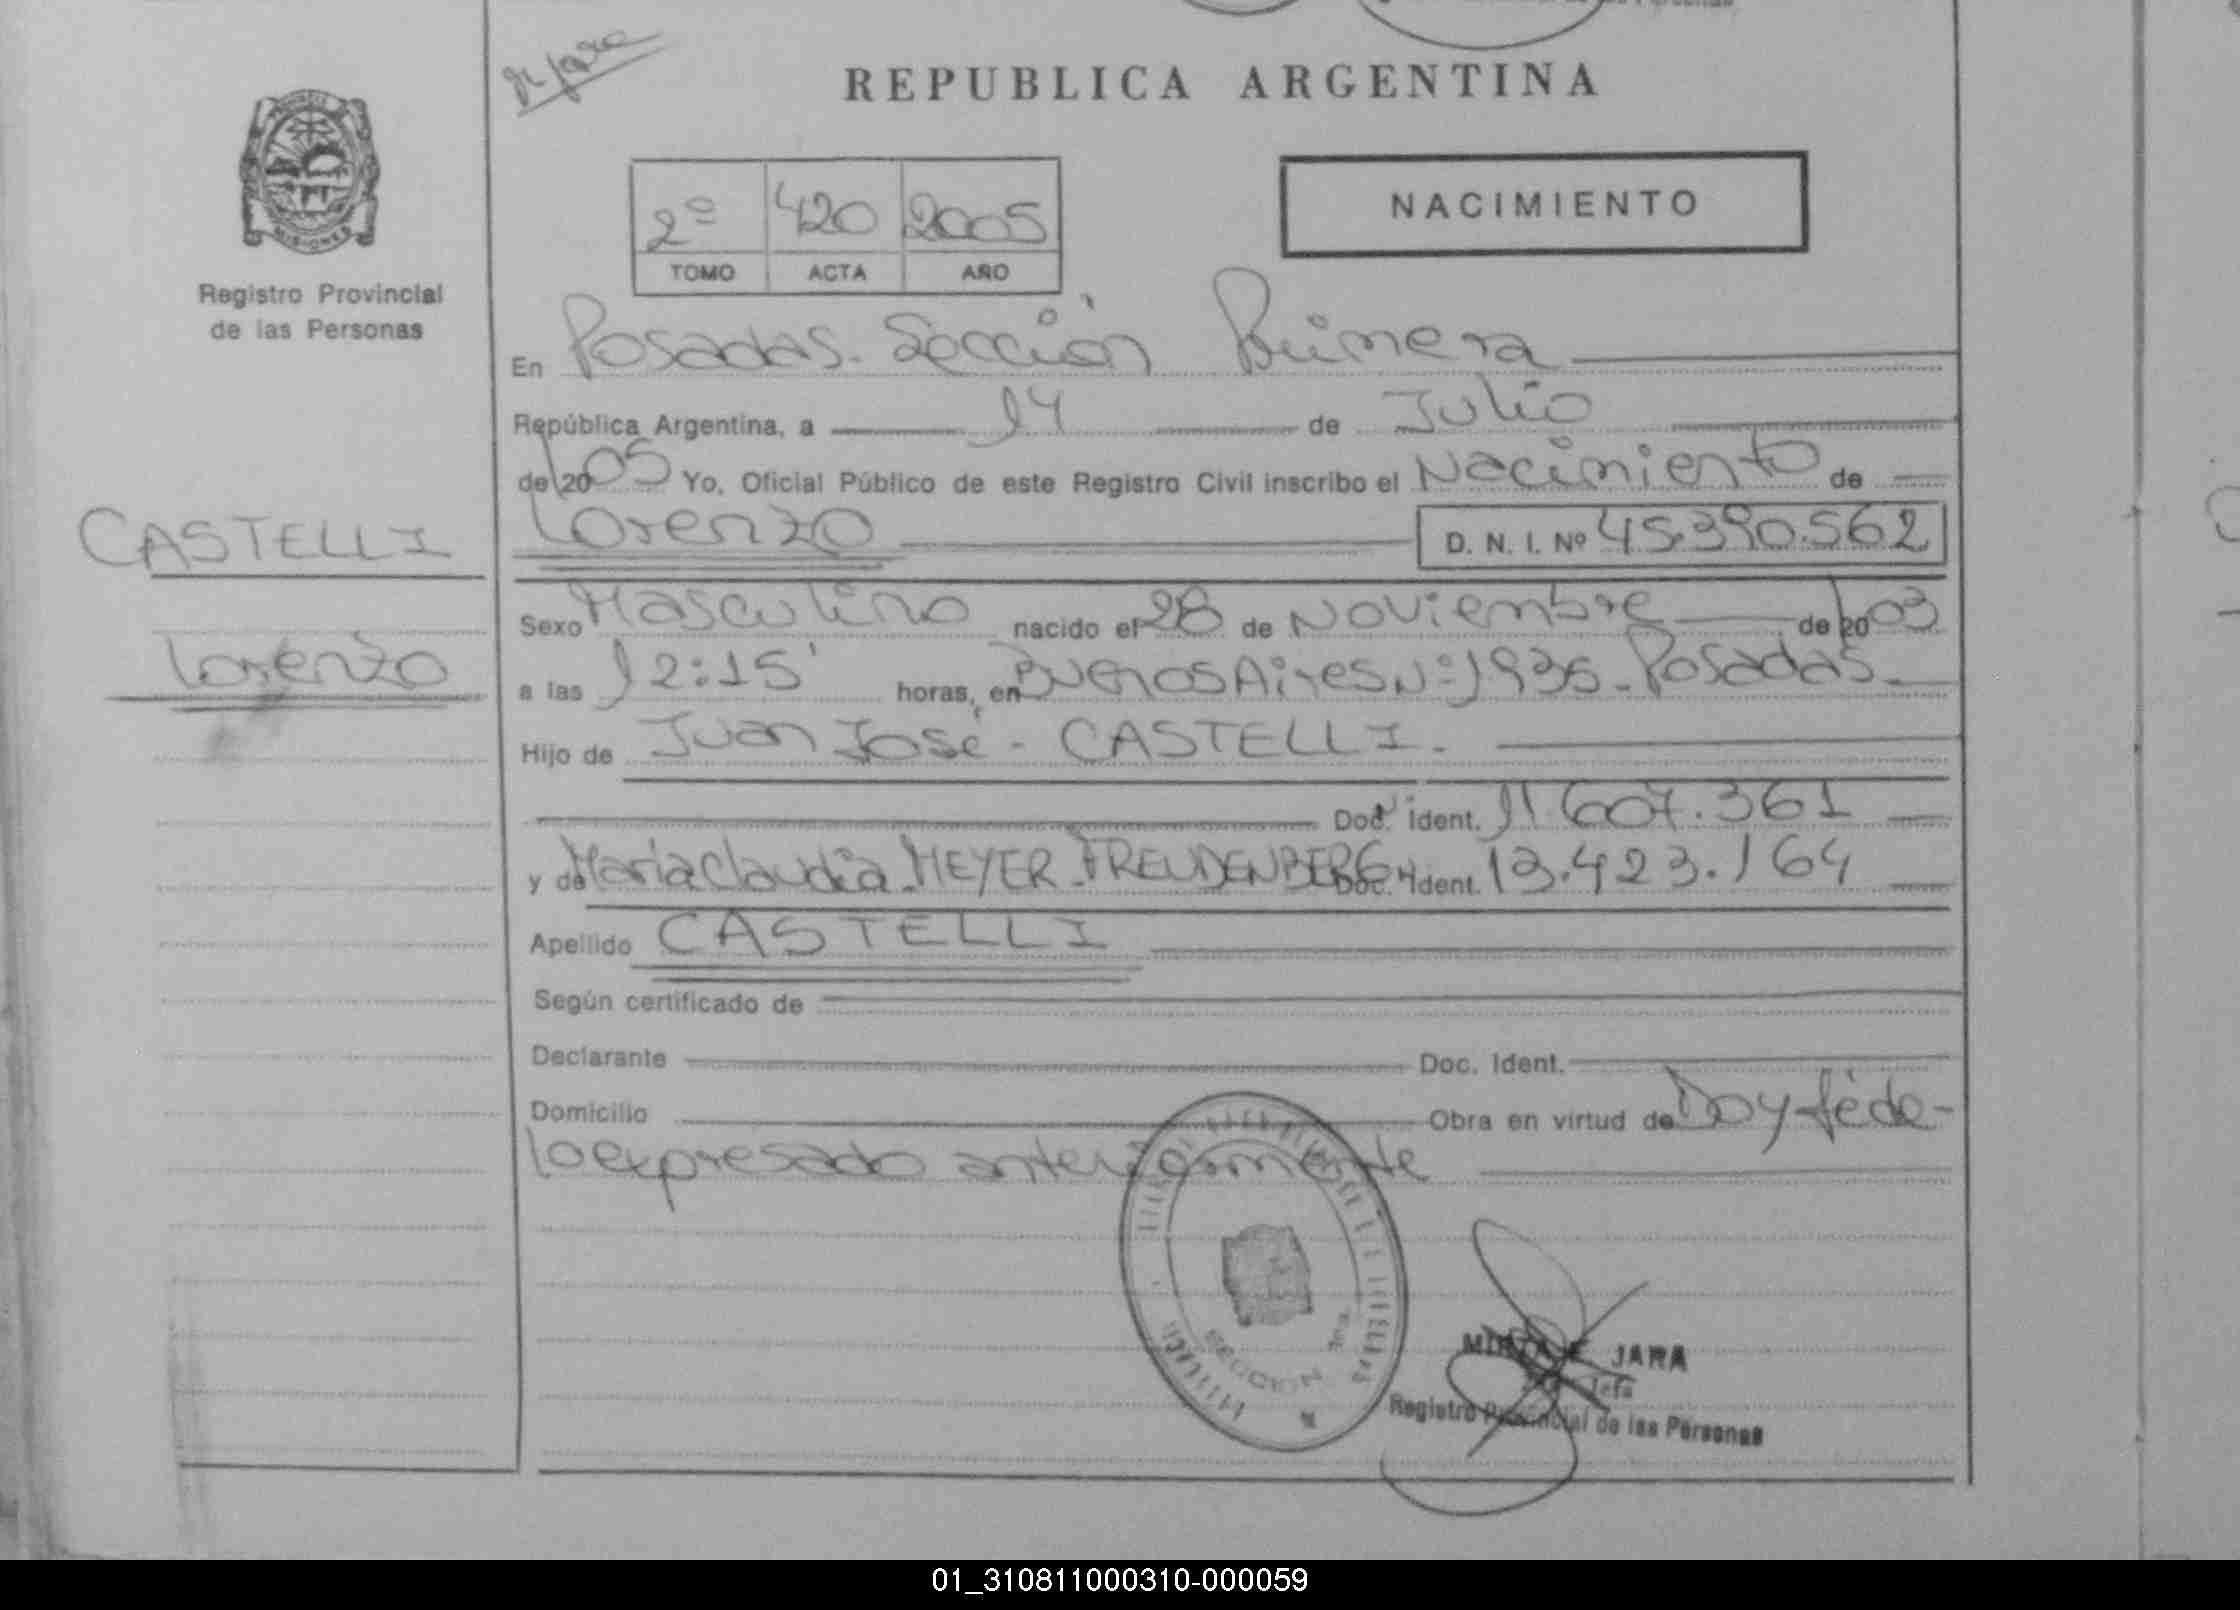 REPUBLICA ARGENTINA
MISIONES
Registro Provincial
de las Personas
2º 420 2005
TOMO ACTA AÑO
NACIMIENTO
En Posadas. Sección Primera
República Argentina, a 14 de Julio
de 2005 Yo, Oficial Público de este Registro Civil inscribo el Nacimiento de
CASTELLI
Lorenzo
Lorenzo D. N. I. Nº 45.390.562
Sexo Masculino nacido el 28 de Noviembre de 2003
a las 12:15' horas, en Buenos Aires Nº 1935 - Posadas.
Hijo de Juan José - CASTELLI.
Doc. ident. 11.607.361
y de Maria Claudia MEYER FREUDENBERG Doc. Ident. 13.423.164
Apellido CASTELLI
Según certificado de
Declarante Doc. Ident.
Domicilio Obra en virtud de Doy fé de-
lo expresado anteriormente
SECCION 1ra.
JARA
Jefa
Registro Provincial de las Personas
01_310811000310-000059